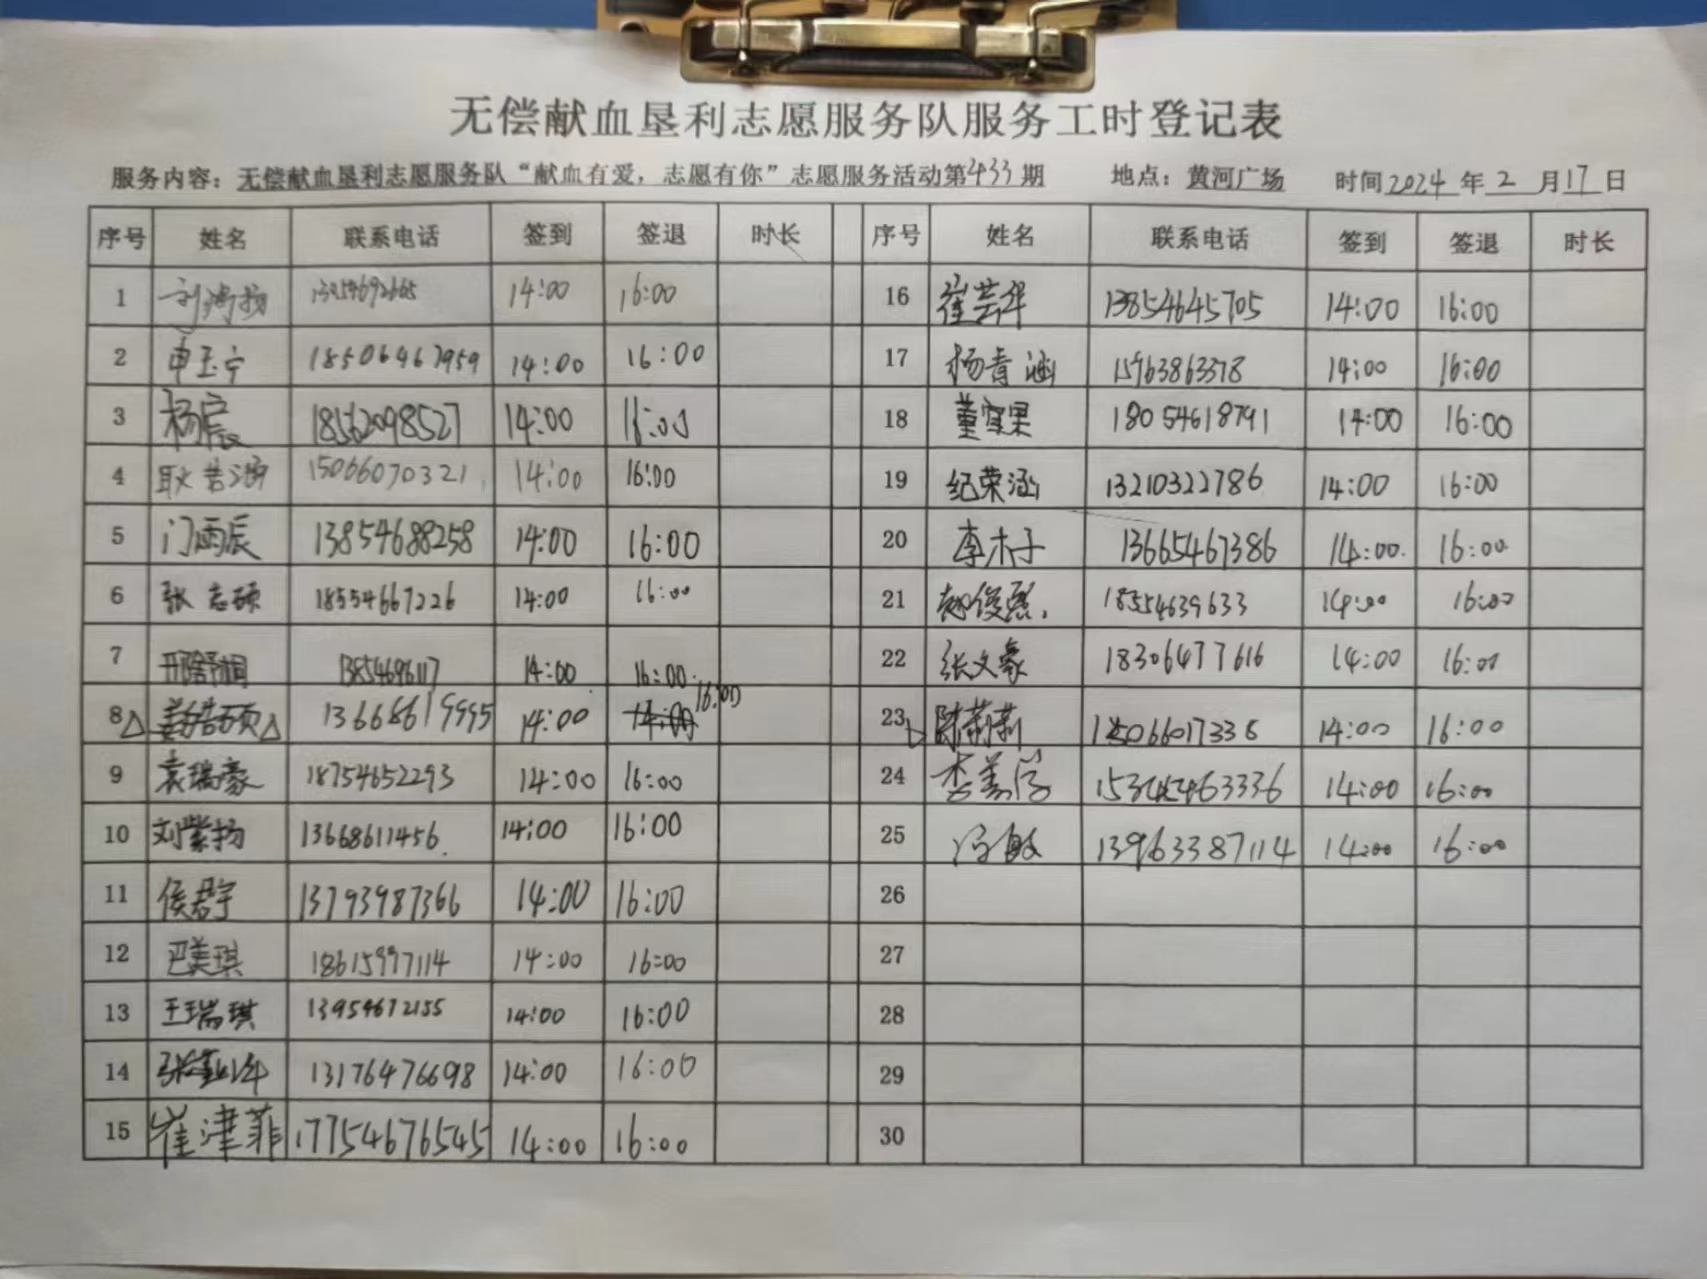 无偿献血垦利志愿服务队服务工时登记表
服务内容：无偿献血垦利志愿服务队“献血有爱，志愿有你”志愿服务活动第433期 地点：黄河广场 时间2024年2月17日
序号 姓名 联系电话 签到 签退 时长 序号 姓名 联系电话 签到 签退 时长
1 14:00 16:00 16 崔芸华 13854645705 14:00 16:00
2 申玉宁 18506467959 14:00 16:00 17 杨青涵 15963863378 14:00 16:00
3 杨宸 18562098527 14:00 18 18054618791 14:00 16:00
4 耿若涵 15066070321 14:00 16:00 19 纪荣涵 13210322786 14:00 16:00
5 门雨辰 13854688258 14:00 16:00 20 李木子 13665467386 14:00 16:00
6 张志硕 18554667226 14:00 16:00 21 18554639633 14:00 16:00
7 邢舒桐 14:00 16:00 22 张文豪 18306477616 14:00 16:00
8 13668619995 14:00 16:00 23 陈莉莉 14:00 16:00
9 袁瑞豪 18754652293 14:00 16:00 24 14:00 16:00
10 刘紫扬 13668611456 14:00 16:00 25 冯敏 13963387114 14:00 16:00
11 侯君宇 13793987366 14:00 16:00 26
12 巴美琪 18615997114 14:00 16:00 27
13 王瑞琪 13954672155 14:00 16:00 28
14 13176476698 14:00 16:00 29
15 崔津菲 17754676545 14:00 16:00 30